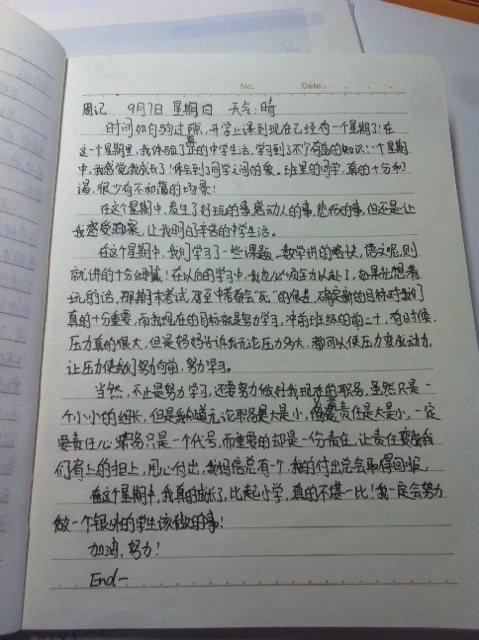 No. Date
周记 9月7日 星期日 天气:晴
时间如白驹过隙,开学上课到现在已经有一个星期了!在
这一个星期里,我体验了真正的中学生活,学习到了不少有益的知识!一个星期
中,我感觉我成长了!体会到了同学之间的爱。班里的同学,真的十分和
谐,很少有不和谐的场景!
在这个星期中,发生了好玩的事,感动人的事,悲伤的事,但还是让
我感受温深,让我明白辛苦的中学生活。
在这个星期中,我们学习了一些课题,数学讲的略快,语文呢,则
就讲的十分细!在以后的学习中,我也必须全力以赴了,如果光想着
玩的话,那期末考试,乃至中考都会"死"的很惨,确定新的目标对我们
真的十分重要,而我现在的目标就是努力学习,冲前班级的前二十,有时候,
压力真的很大,但是妈妈告诉我无论压力多大,都可以使压力变成动力,
让压力使我们努力向前,努力学习。
当然,不止是努力学习,还要努力做好我现在的职务,虽然只是一
个小小的组长,但是我知道无论职务是大是小,责任是大是小,一定
要责任心 职务只是一个代号,而重要的却是一份责任,让责任变成我
们肩上的担,用心付出,我相信总有一个,我的付出总会取得回报。
在这个星期中,我真的成长了,比起小学,真的不堪一比!我一定会努力
做一个银外的学生该做的事!
加油,努力!
End—